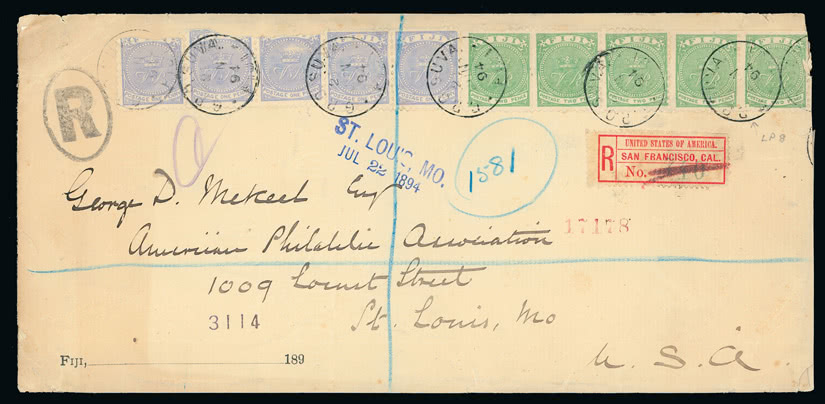 FIJI FIJI FIJI FIJI FIJI
POSTAGE ONE PENNY
POSTAGE TWO PENCE
SUVA
94
G.P.O.
R
ST. LOUIS, MO.
JUL 22 1894
1581
LP 8
UNITED STATES OF AMERICA.
R SAN FRANCISCO, CAL.
No.
George D. Mekeel Esq
American Philatelic Association
17178
1009 Locust Street
3114
St. Louis, Mo
FIJI, 189
U. S. A.